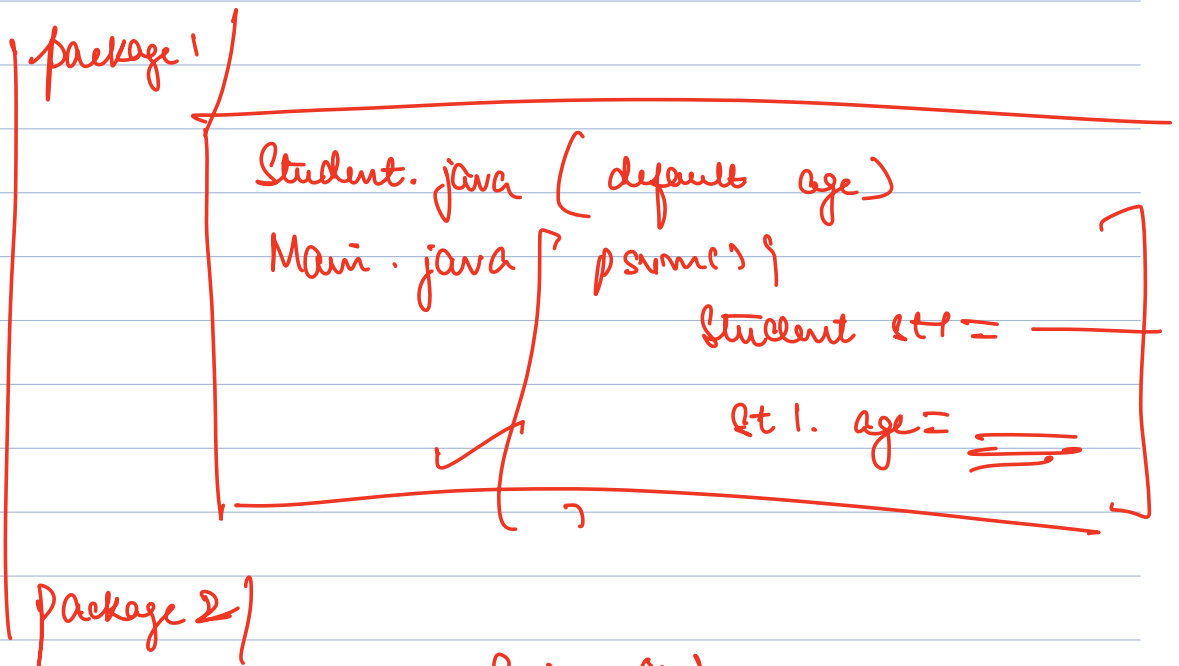 package 1
Student.java (default age)
Main.java psvm() {
Student st1 =
st1. age =
}
Package 2